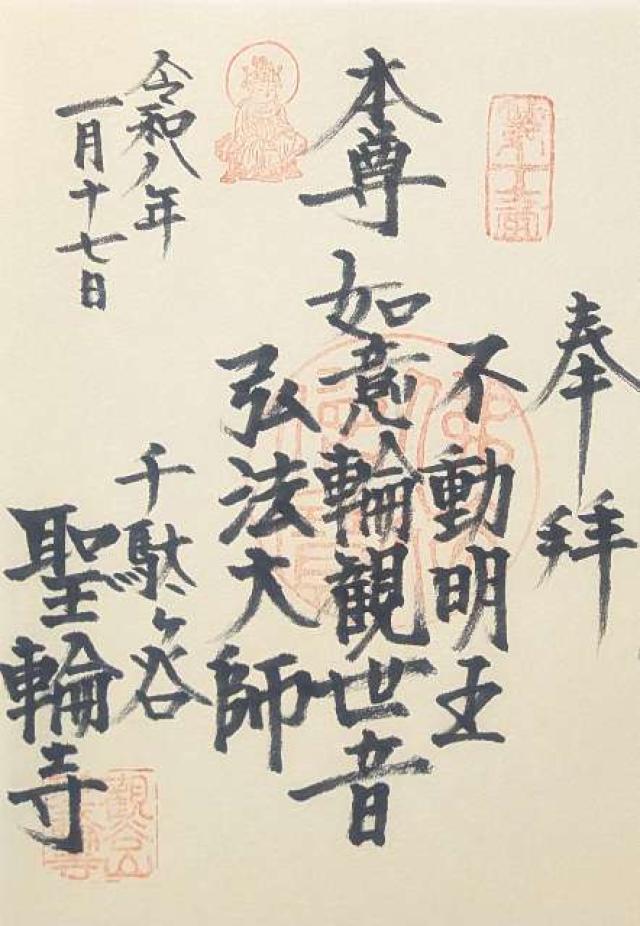 奉拝
不動明王
本尊 如意輪観世音
弘法大師
令和八年
一月十七日
千駄ヶ谷
聖輪寺
観谷山